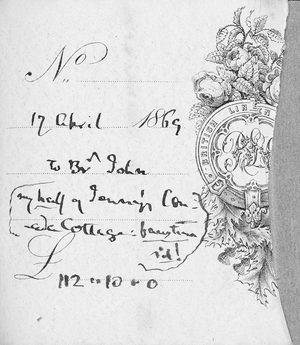 No
17 April 1869
To Br John
my half of Jenny's Con-
Cottage:
£112 " 10 " 0
BRITISH LIN